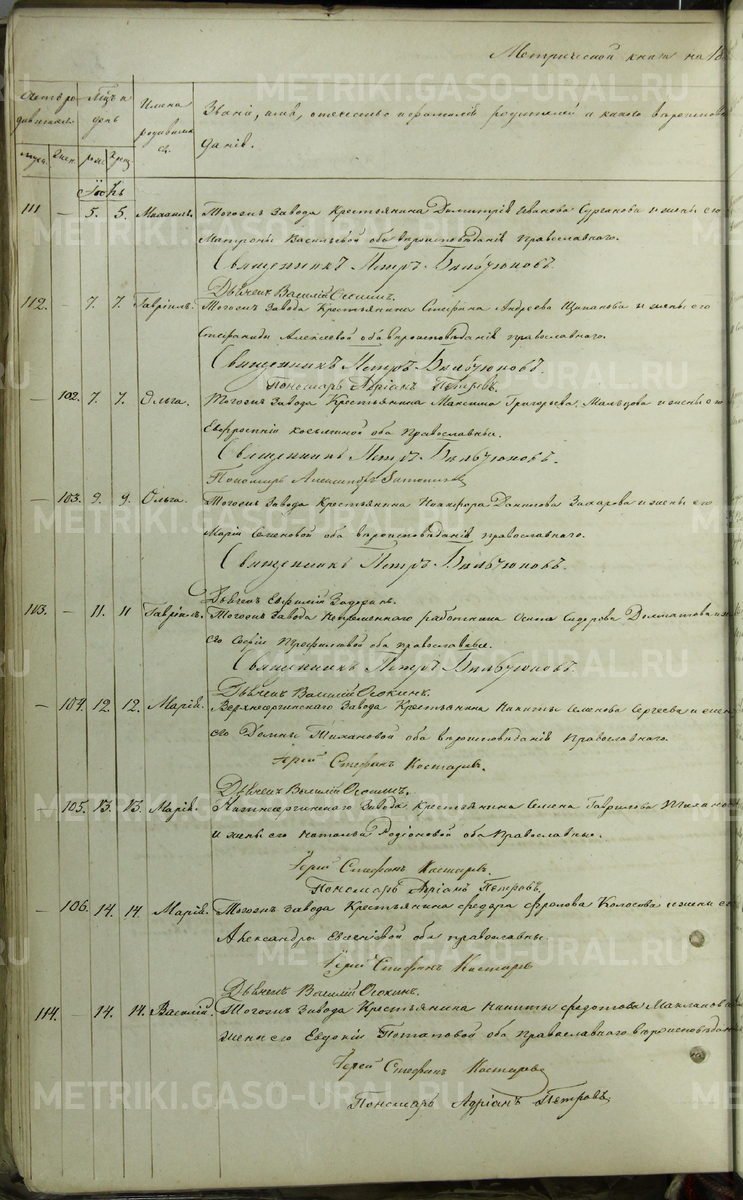 Метрической книги на 18
Счетъ родившихся. Мѣсяцъ и день Имена родившихся. Званіе, имя, отечество и фамилія родителей и какого вѣроисповѣданія.
муж. жен. рож. крещ.
111 — 5. 5. Михаилъ. Тогожъ Завода Крестьянина Димитрія Иванова Сурганова и жены его
Матроны Васильевой оба вѣроисповѣданія Православнаго.
Священникъ Петръ
Дьячекъ Василій Ососинъ.
112. — 7. 7. Гавріилъ. Тогожъ Завода Крестьянина Стефана Андреева и жены его
Степаниды Алексеевой оба вѣроисповѣданія православнаго.
Священникъ Петръ
Пономарь Адріанъ Петровъ.
— 102. 7. 7. Ольга. Тогожъ Завода Крестьянина Максима Григорьева Мальцова и жены его
Евфросиніи Косьминой оба Православны.
Священникъ Петръ
Пономарь Александръ
— 103. 9. 9. Ольга. Тогожъ Завода Крестьянина Никифора Данилова Захарова и жены его
Маріи Семеновой оба вѣроисповѣданія православнаго.
Священникъ Петръ
Дьячекъ Евфимій Задоринъ.
113. — 11. 11 Гавріилъ. Тогожъ Завода Непременнаго работника Осипа Сидорова Долматова и
его Софіи оба православные.
Священникъ Петръ
Дьячекъ Василій Ососинъ.
— 104. 12. 12. Марія. Верхнесергинскаго Завода Крестьянина Никиты Семенова Сергеева и жены
его Домны Тихановой оба вѣроисповѣданія Православнаго.
Іерей Стефанъ Костаревъ.
Дьячекъ Василій Ососинъ.
— 105. 13. 13. Марія. Нижнесергинскаго Завода Крестьянина Семена Гаврилова
и жены его Натальи Родіоновой оба Православные.
Іерей Стефанъ Костаревъ.
Пономарь Адріанъ Петровъ.
— 106. 14. 14. Марія. Тогожъ Завода Крестьянина Федора Фролова Колосова и жены его
Александры Евсеніевой оба православны.
Іерей Стефанъ Костаревъ
Дьячекъ Василій Ососинъ.
114. — 14. 14. Василій. Тогожъ Завода Крестьянина Никиты Федотова Макланова
жены его Евдокіи Потаповой оба православнаго вѣроисповѣданія
Іерей Стефанъ Костаревъ
Пономарь Адріанъ Петровъ
METRIKI.GASO-URAL.RU